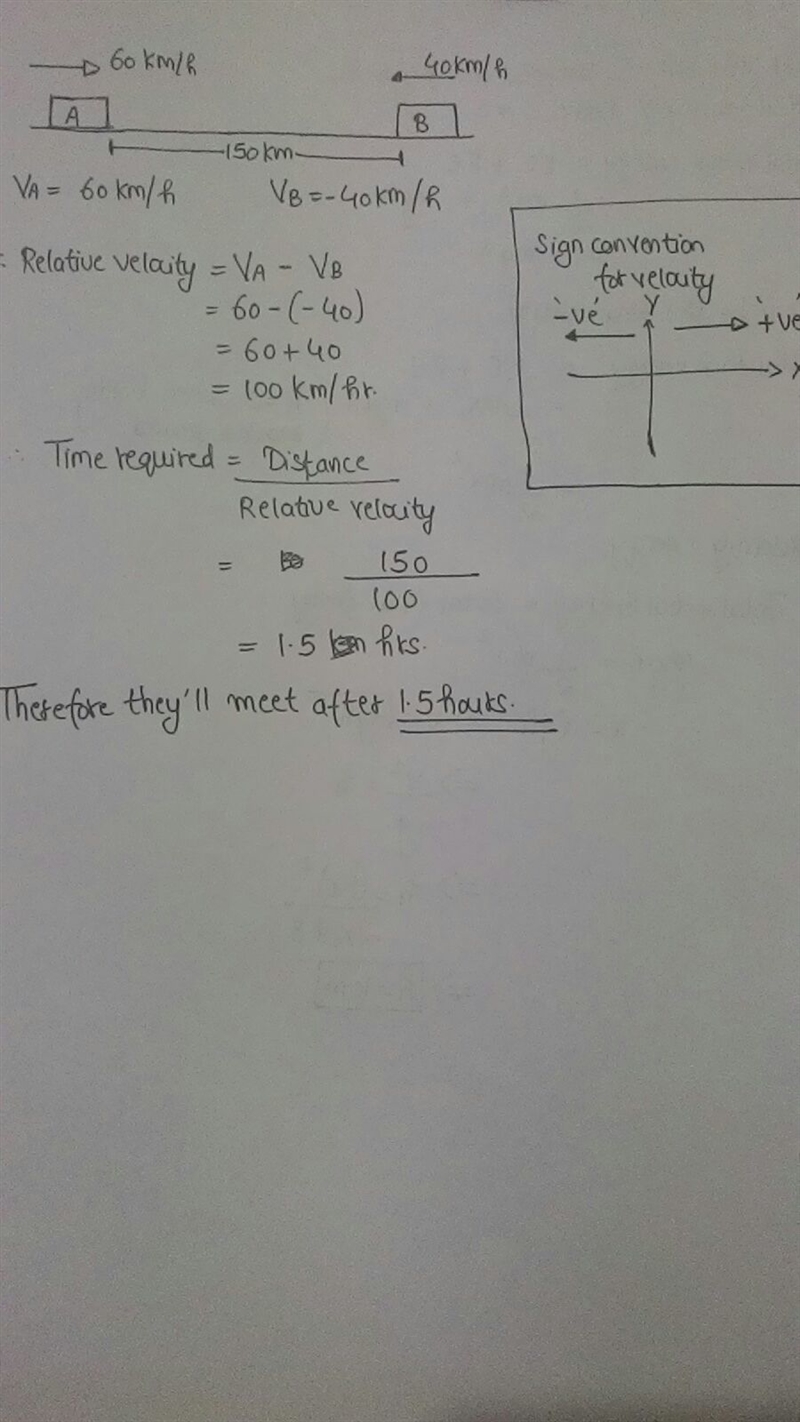 60 km/h
40km/h
A
B
150 km
VA = 60 km/h
VB = -40 km/h
Sign convention
for velocity
∴ Relative velocity = VA - VB
= 60 - (-40)
= 60 + 40
= 100 km/hr.
'-ve'
Y
'+ve'
X
∴ Time required = Distance
Relative velocity
= 150
100
= 1.5 hrs.
Therefore they'll meet after 1.5 hours.